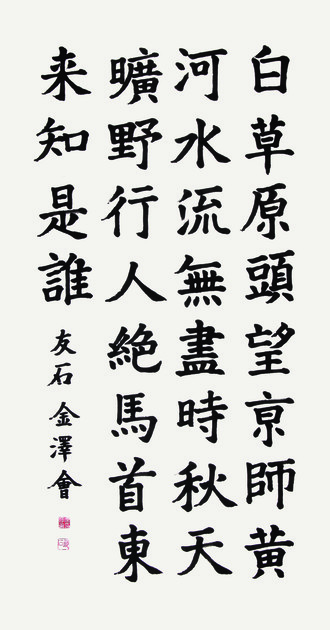 白草原頭望京師黃
河水流無盡時秋天
曠野行人絕馬首東
来知是誰
友石 金澤會